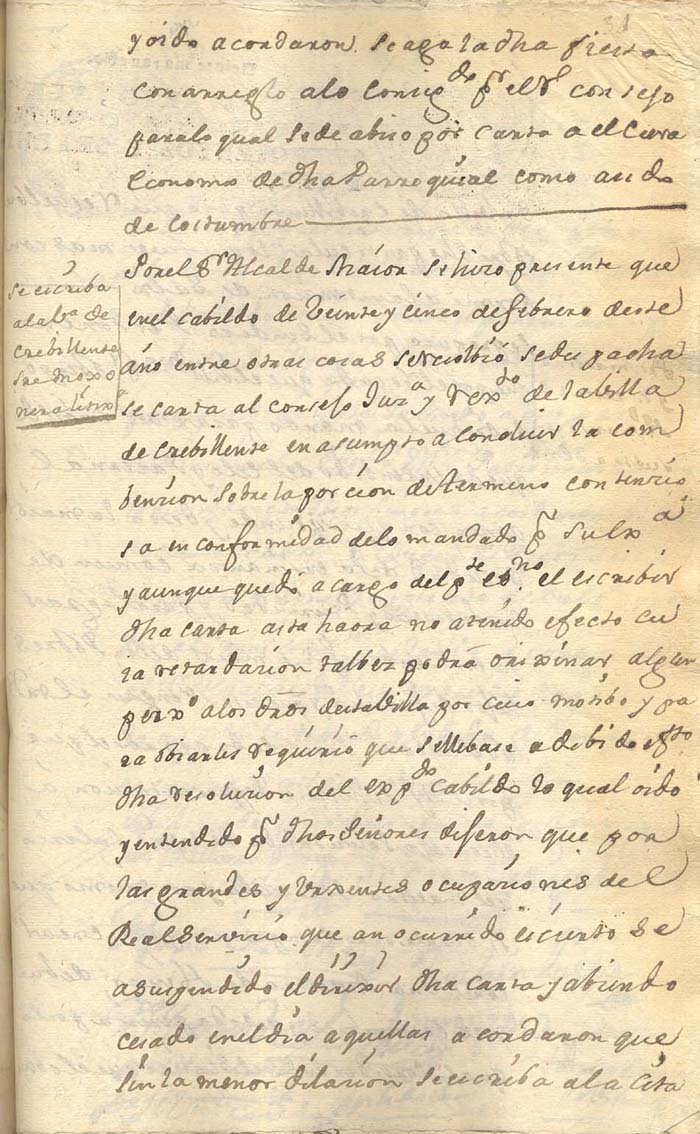 31
y oido acordaron se aga la dha fiesta
con arreglo a lo Consigdo pr el Rl consejo
para lo qual se de abiso por carta a el Cura
Economo de dha Parroquial como a sido
de costumbre
Por el Sr Alcalde Maior se hizo presente que
en el cabildo de Veinte y cinco de febrero deste
año entre otras cosas se resolbió se despacha
se carta al consejo Juza y Rexto de la Villa
de Crebillente en asumpto a Concluir la com
benzion sobre la porcion de termino contenzio
sa en conformidad de lo mandado pr su Exa
y aunque quedó a cargo del pste esno el escribir
dha carta asta haora no a tenido efecto cu
ia retardazion talbez podrá orixinar algun
perxo a los dros desta Villa por cuio motibo y pa
ra obiarles requirió que se llebase a debido efto
dha resoluzion del expdo cabildo lo qual oido
y entendido pr dhos Señores dijeron que por
las grandes y urxentes ocupaziones del
Real Servizio que an ocurrido es cierto se
a suspendido el dirixir dha carta y abiendo
cesado en el dia aquellas acordaron que
sin la menor dilazion se escriba a la cita
se escriba
a la Va de
Crebillente
sre moxo
nera